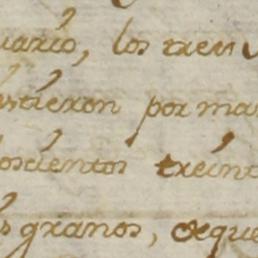 uario, los tren
stieron por man
oscientos treint
s granos, exque